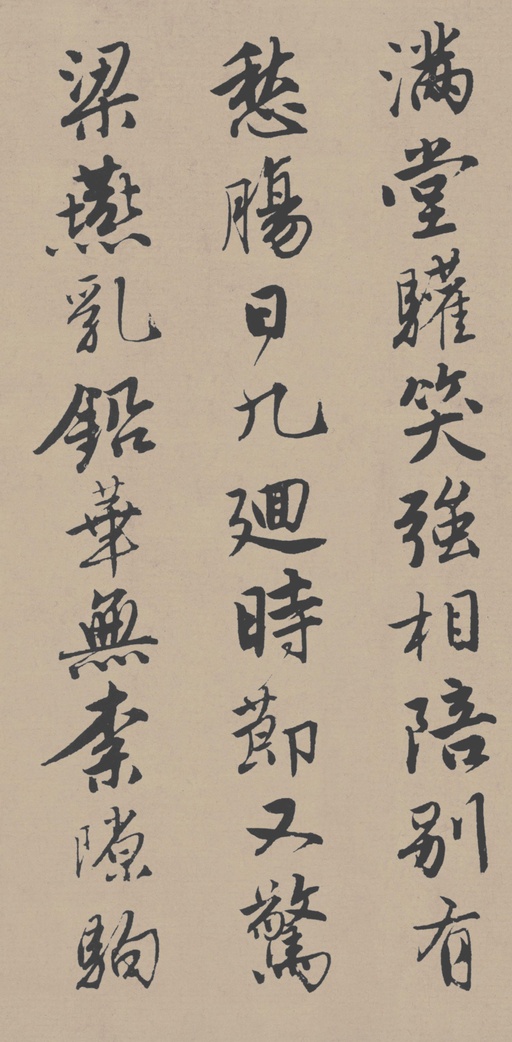 滿堂驩笑強相陪別有
愁腸日九迴時節又驚
梁燕乳鉛華無柰隙駒